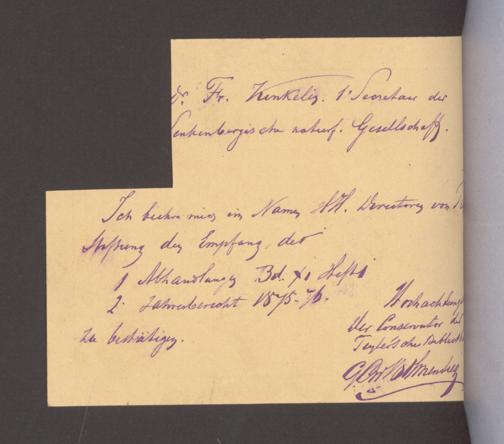 Dr. Fr. Kinkelin. 1r Secretair der
Senkenbergische naturf. Gesellschaft.
Ich beehre mich im Namen HH. Directoren von
Stiftung den Empfang, der
1 Abhandlungen Bd. XI Heft 1
2. Jahresbericht 1875-76.
zu bestätigen.
Hochachtungs
der Conservator der
Teyler'schen Biblioth